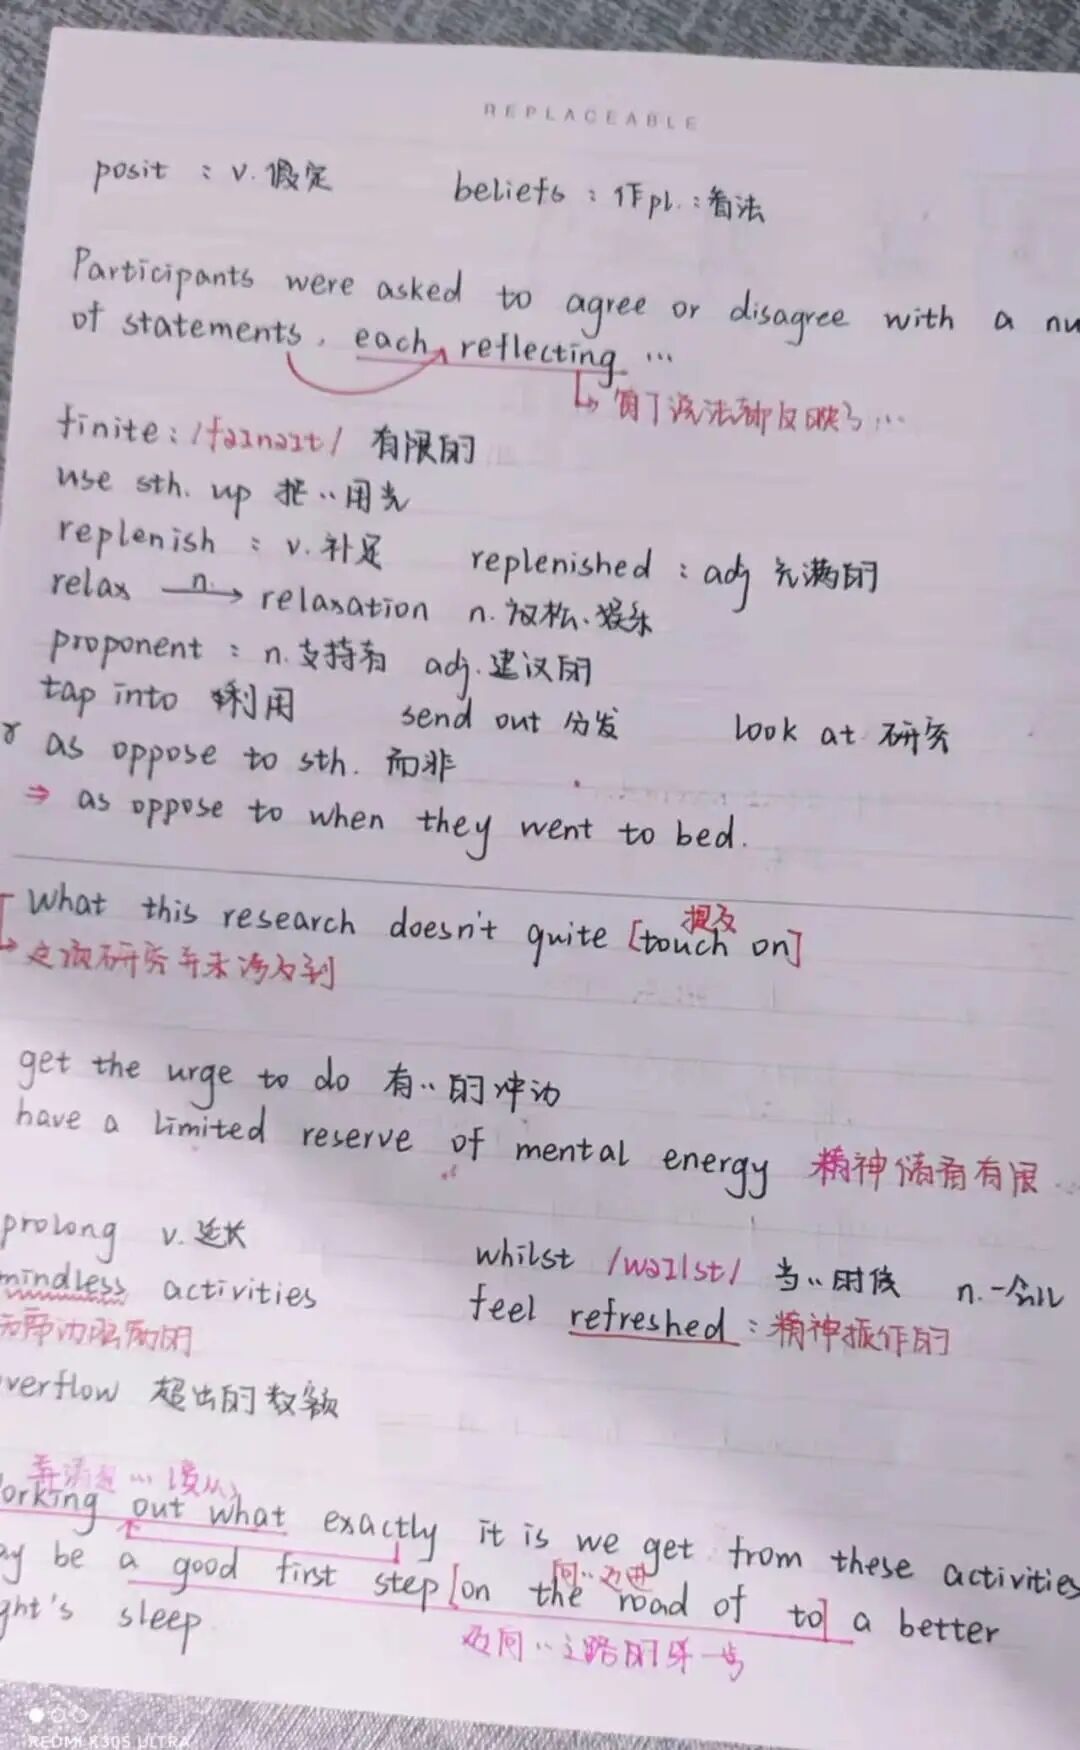 REPLACEABLE
posit : v. 假定 beliefs : 作pl. : 看法
Participants were asked to agree or disagree with a nu
of statements, each reflecting ...
每个说法都反映了...
finite: /faɪnaɪt/ 有限的
use sth. up 把..用光
replenish : v. 补足 replenished : adj 充满的
relax n. → relaxation n. 放松、娱乐
proponent : n. 支持者 adj. 建议的
tap into 利用 send out 分发 look at 研究
as oppose to sth. 而非
⇒ as oppose to when they went to bed.
提及
What this research doesn't quite [touch on]
这项研究并未涉及到
get the urge to do 有..的冲动
have a limited reserve of mental energy 精神储蓄有限
prolong v. 延长 whilst /waɪlst/ 当..时候 n. 一会儿
mindless activities feel refreshed : 精神振作的
verflow 超出的数额
弄清楚 ...
orking out what exactly it is we get from these activities
ay be a good first step [on the road of to] a better
ght's sleep
迈向..之路的第一步
REDMI K30S ULTRA